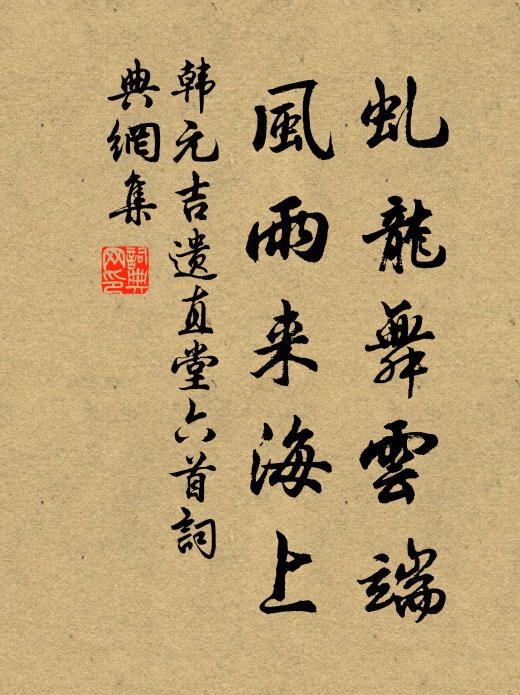 虬龍舞雲端
風雨来海上
韩元吉遗直堂六首詞
典網集
詞典
网印